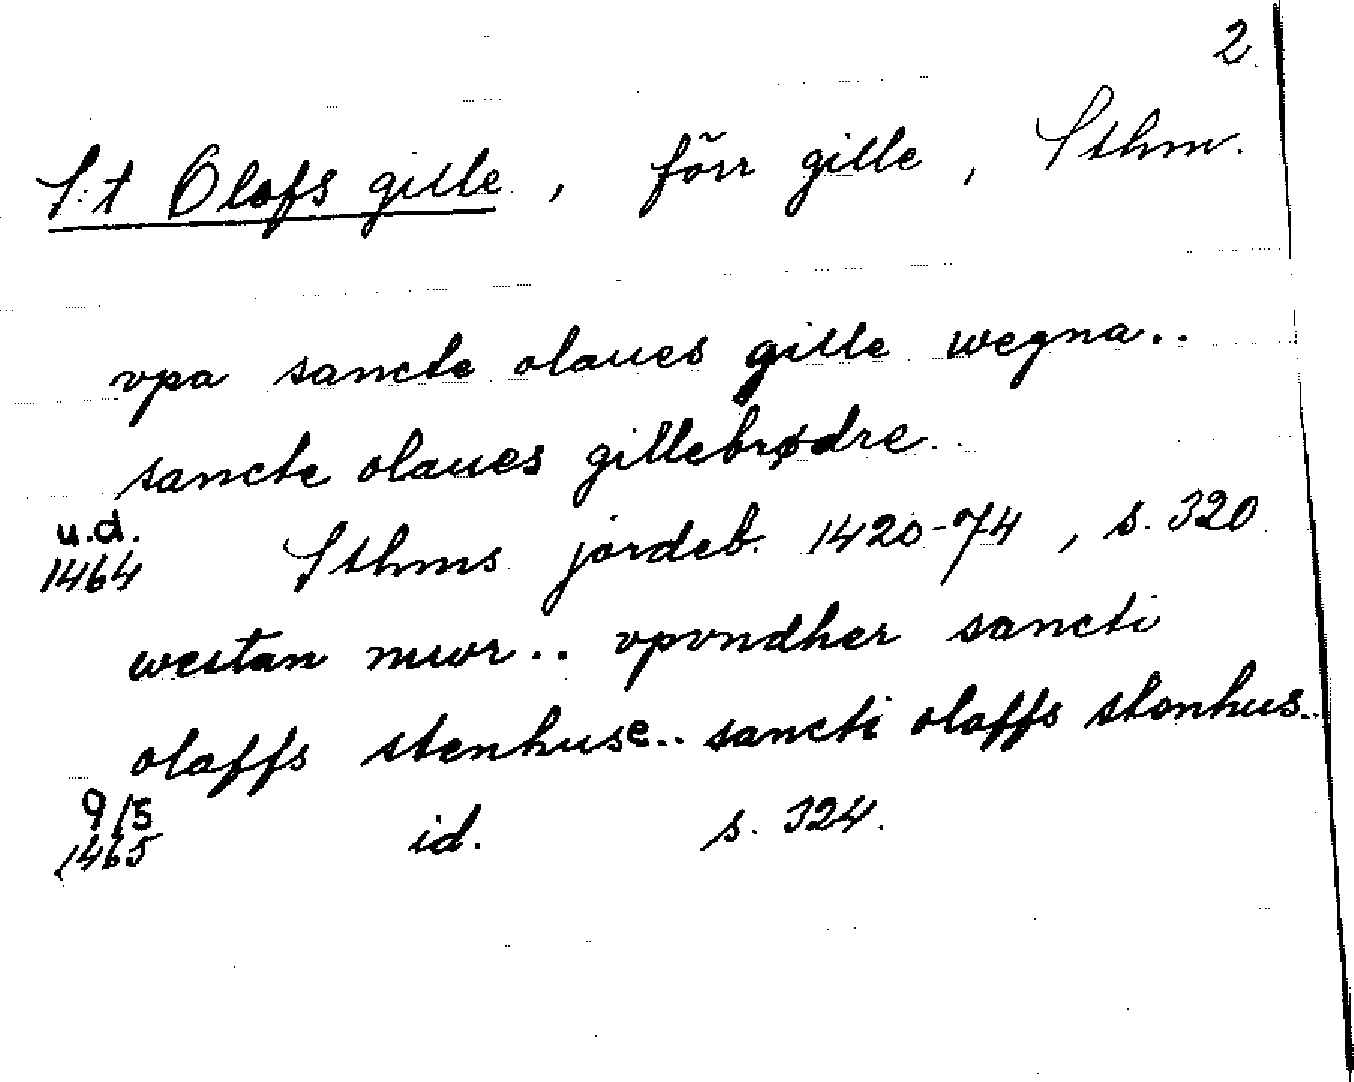 2.
S:t Olofs gille, förr gille, Sthm.
vpa sancte olaues gille wegna..
sancte olaues gillebrødre..
u.d.
1464 Sthms jordeb. 1420-74, s. 320.
westan mwr.. vpvndher sancti
olaffs stenhuse.. sancti olaffs stenhus..
9/5
1465 id. s. 324.